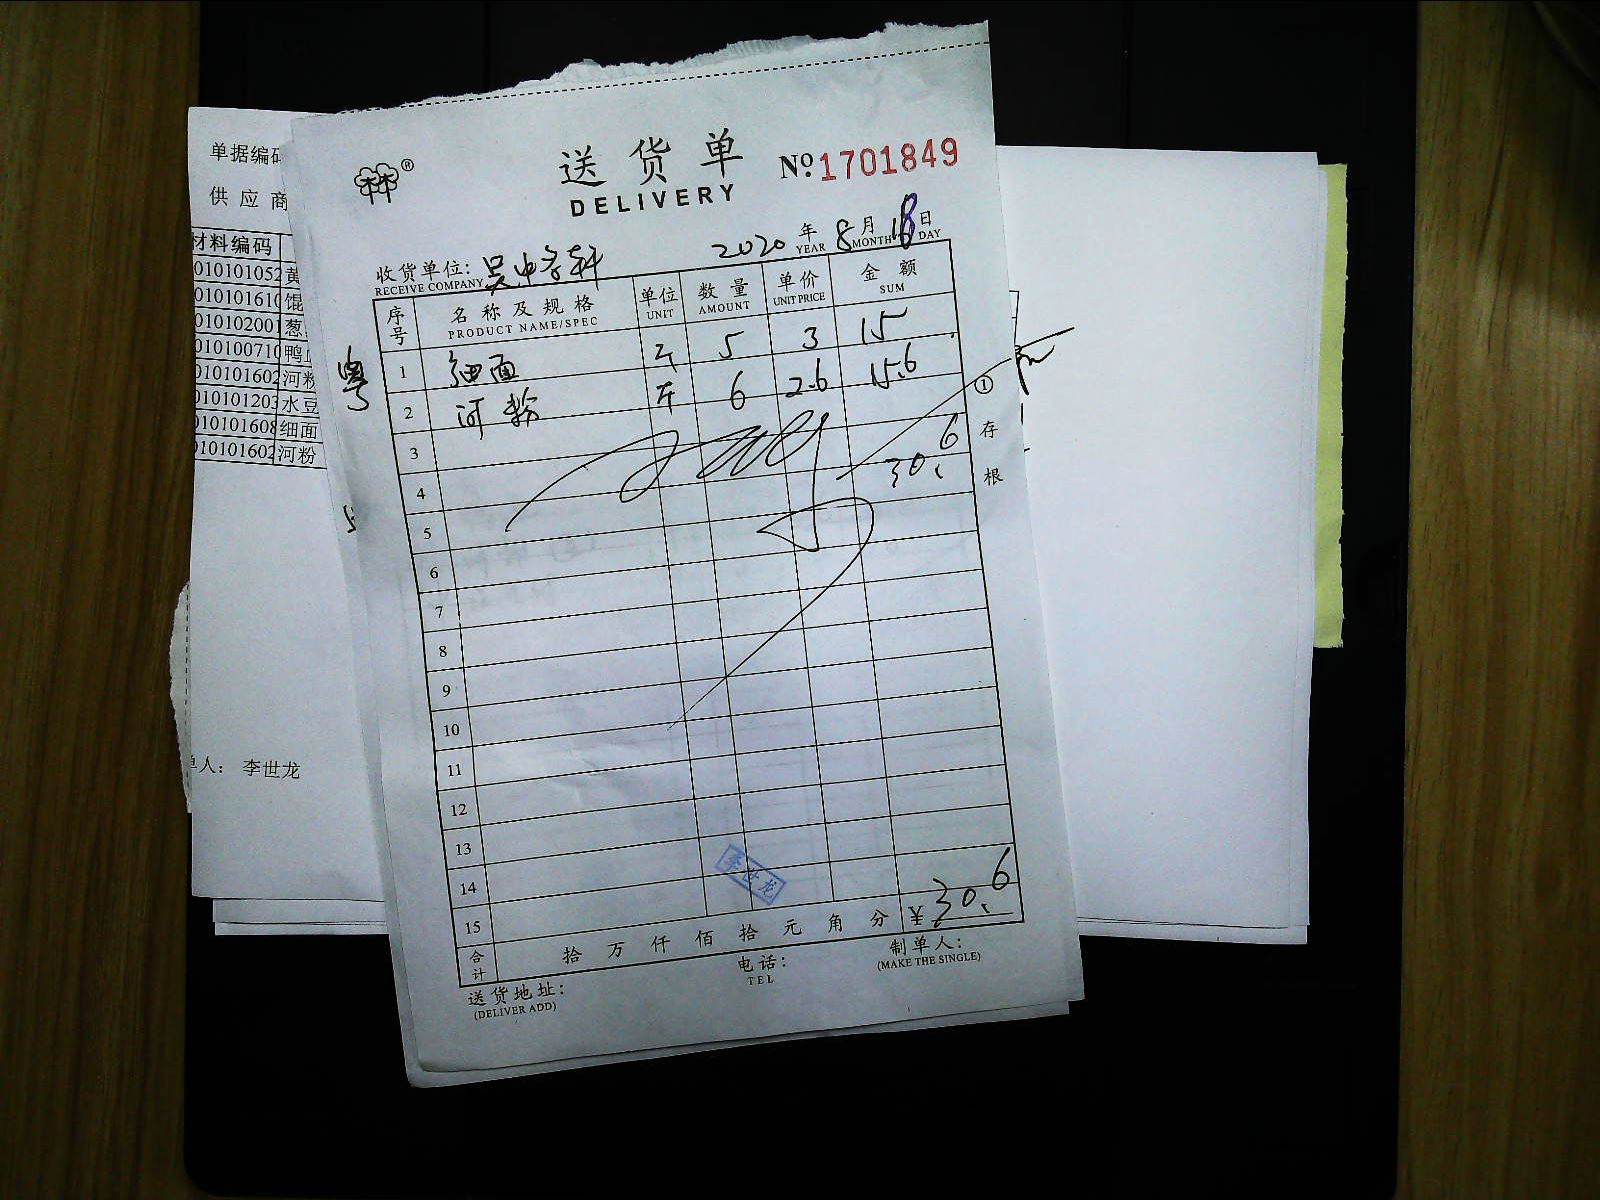 送货单
DELIVERY
№ 1701849
®
2020 年 8 月 18 日
YEAR MONTH DAY
收货单位: 吴中学轩
RECEIVE COMPANY
序号 名称及规格 单位 数量 单价 金额
PRODUCT NAME/SPEC UNIT AMOUNT UNIT PRICE SUM
1 细面 斤 5 3 15
2 河粉 斤 6 2.6 15.6
3
4 30.6
5
6
7
8
9
10
11
12
13
14
15
合计 拾 万 仟 佰 拾 元 角 分 ¥30.6
李世龙
送货地址: 电话: 制单人:
(DELIVER ADD) TEL (MAKE THE SINGLE)
①存根
单据编码
供应商
材料编码
010101052 黄
010101610 馄
010102001 葱
010100710 鸭血
010101602 河粉
010101203 水豆
010101608 细面
010101602 河粉
单人: 李世龙